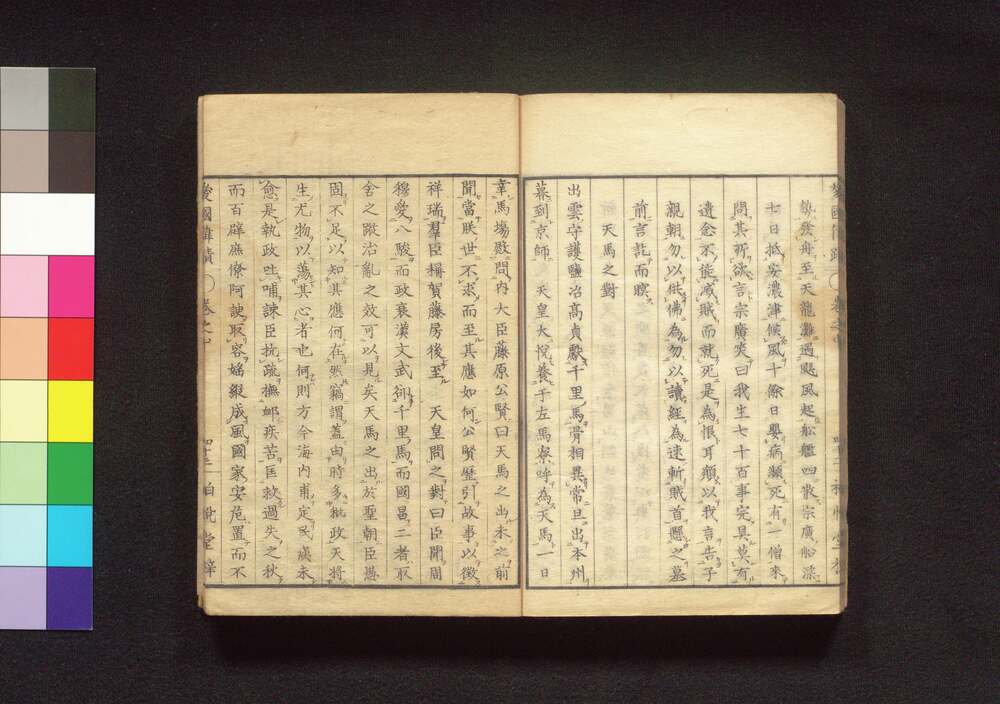 勢發舟至天龍灘過颶風起舩艦四散宗廣舩漂
七日抵安濃津候風十餘日嬰病瀕死有一僧來
問其所欲言宗廣笑曰我生七十百事完具莫有
遺念不能滅賊而就死是為恨耳顧以我言告子
親朝勿以供佛為勿以讀經為速斬賊首懸之墓
前言訖而瞑
天馬之對
出雲守護鹽冶高貞獻千里馬骨相異常旦出本州
暮到京師 天皇大悅養于左馬寮呼為天馬一日
幸馬場殿問內大臣藤原公賢曰天馬之出未之前
聞當朕世不求而至其應如何公賢歷引故事以徵
祥瑞羣臣稱賀藤房後至 天皇問之對曰臣聞周
穆愛八駿而政衰漢文武卻千里馬而國昌二者取
舍之蹤治亂之效可以見矣天馬之出於聖朝臣愚
固不足以知其應何在然竊謂蓋由時多秕政天將
生尤物以蕩其心者也何則方今海內甫定民瘼未
愈是執政吐哺諫臣抗疏撫邮疾苦匡救過失之秋
而百辟庶僚阿諛取容婾綴成風國家安危置而不
愛國偉績 卷之